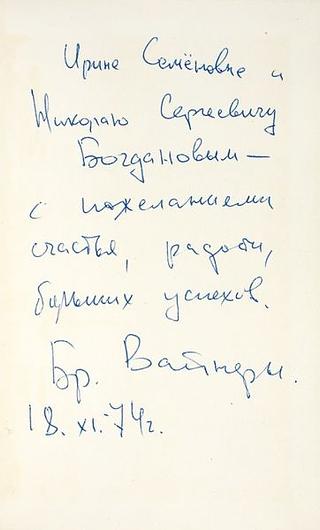 Ирине Семёновне и
Николаю Сергеевичу
Богдановым —
с пожеланиями
счастья, радости,
больших успехов.
Бр. Вайнеры.
18.XI.74г.